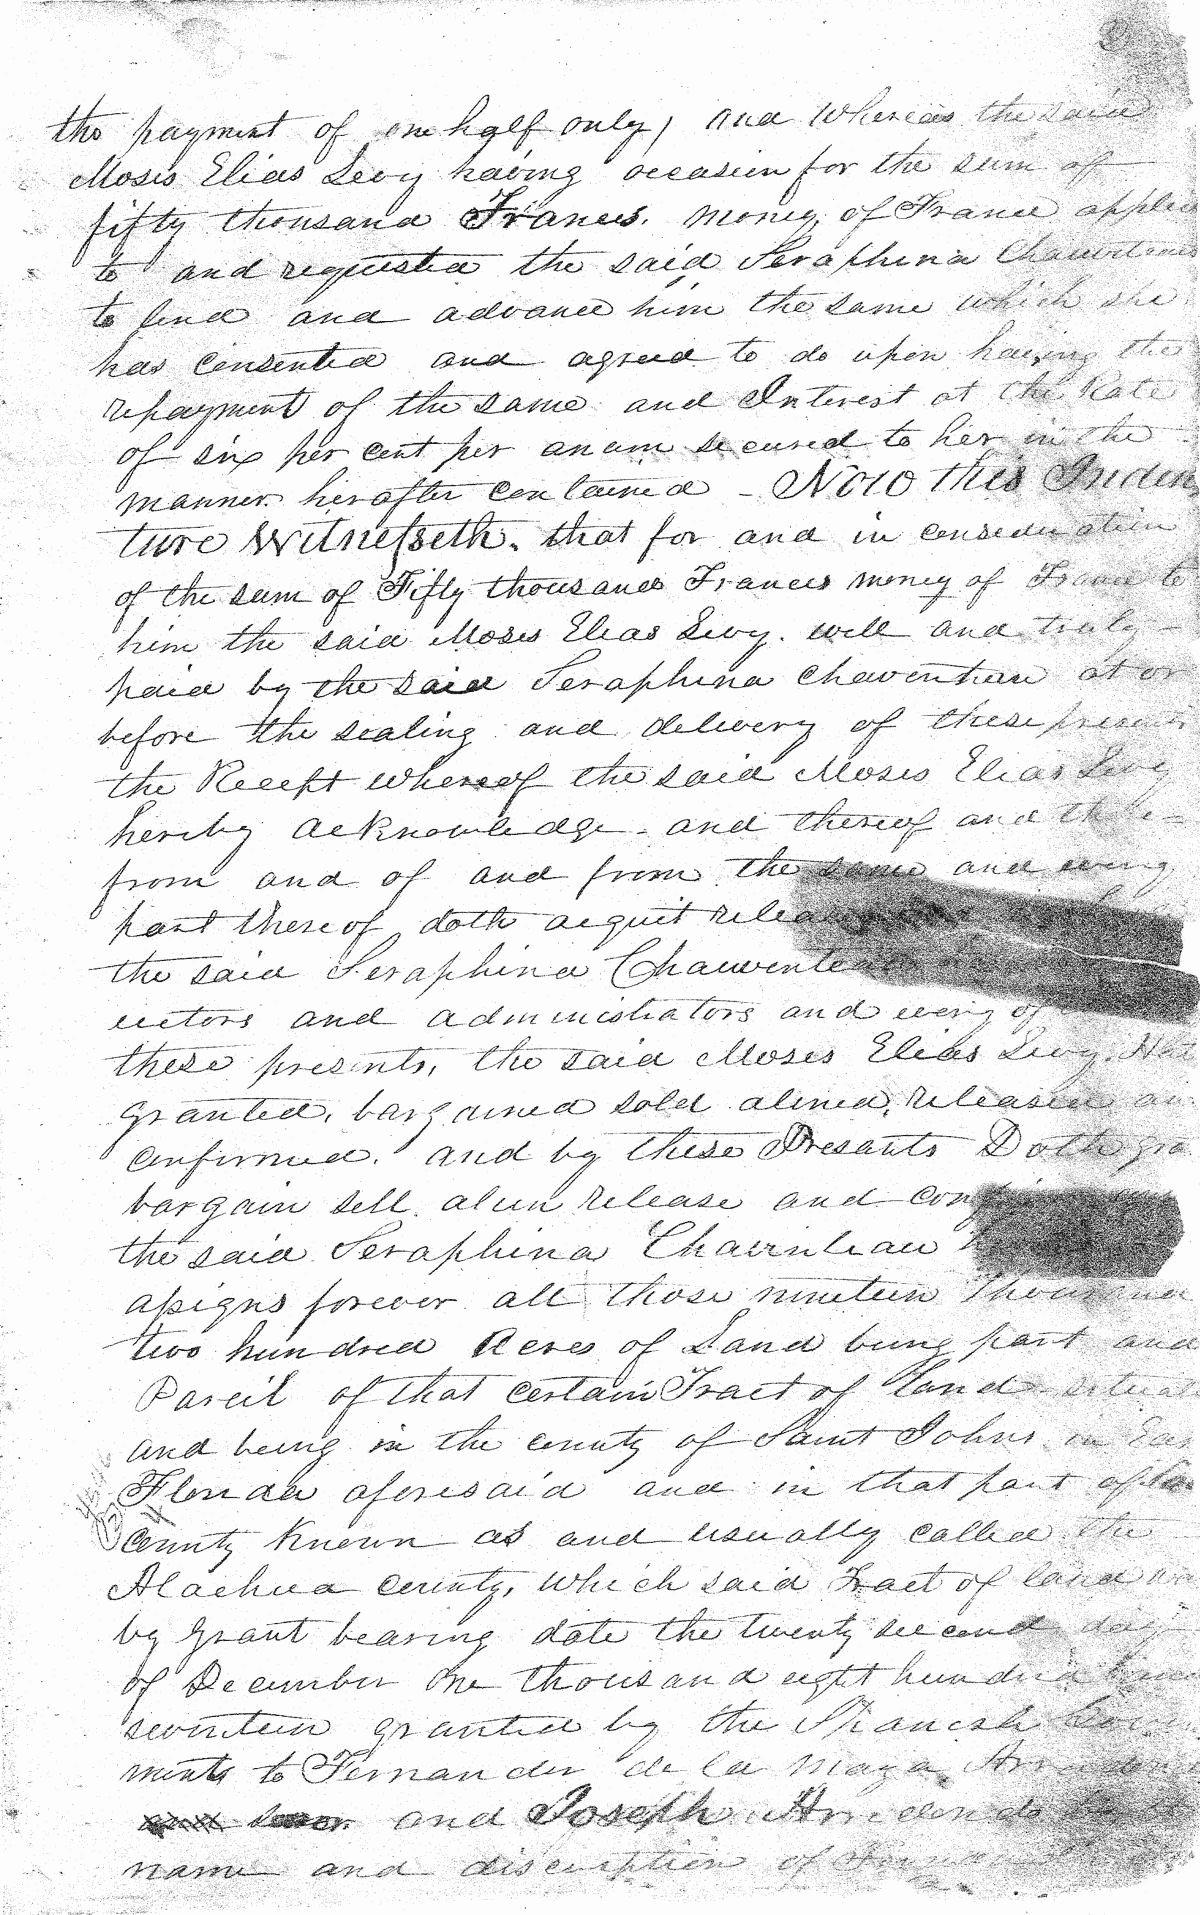 the payment of one half only, and whereas the said
Moses Elias Levy having occasion for the sum of
fifty thousand Frances. money of France applied
to and requested the said Seraphina Chauvinteau
to lend and advance him the same which she
has consented and agreed to do upon having the
repayment of the same and Interest at the Rate
of six per cent per anam secured to her in the
manner herafter contained - Now this Inden
ture Witnesseth. that for and in consideration
of the sum of Fifty thousand Frances money of France to
him the said Moses Elias Levy. well and truly -
paid by the said Seraphina Chaventeau at or
before the sealing and delivery of these presents
the Receept whereof the said Moses Elias Levy
hereby acknowledge - and thereof and there-
from and of and from the same and every
part thereof doth acquit release
the said Seraphina Chauventeau
ecutors and administrators and every of
these presents, the said Moses Elias Levy. Hath
granted, bargained sold aliened, released an
confirmed. and by these Presants Doth gra
bargain sell alien release and confirm unto
the said Seraphina Chaventeau h
assigns forever all those nineteen Thousand
two hundred Acres of Land being part and
Parcil of that certain Tract of land situat
and being in the county of Saint Johns in Eas
Florida aforesaid and in that part of
county known as and usually called the
Alachua county, which said Tract of land was
by Grant bearing date the twenty second day
of December one thousand eight hundred and
seventeen granted by the Spanish Govern
ments to Fernander de la Maza Arredondo
and Joseph Arredondo
name and discription of